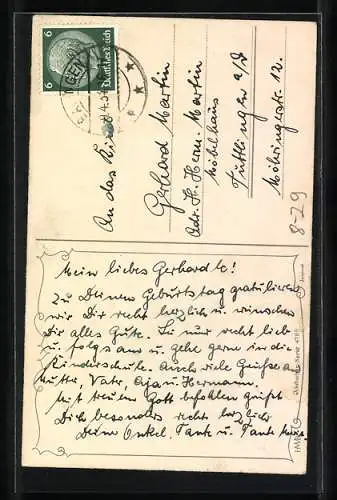 6 Deutsches Reich 6
An das Kind
Gerhard Martin
Adr. H. Herm. Martin
Möbelhaus
Tuttlingen a/D
Möhringerstr. 12.
8-29
Mein liebes Gerhardle!
Zu Deinem Geburtstag gratulieren
wir Dir recht herzlich u. wünschen
Dir alles Gute. Sei nur recht lieb
u. folgsam u. gehe gern in die
Kinderschule. Auch viele Grüsse an
Mutter, Vater, Aja u. Hermann.
Mit treuem Gott befohlen grüßt
Dich besonders recht herzlich
Dein Onkel, Tante u. Tante
HWB
Serie 4785